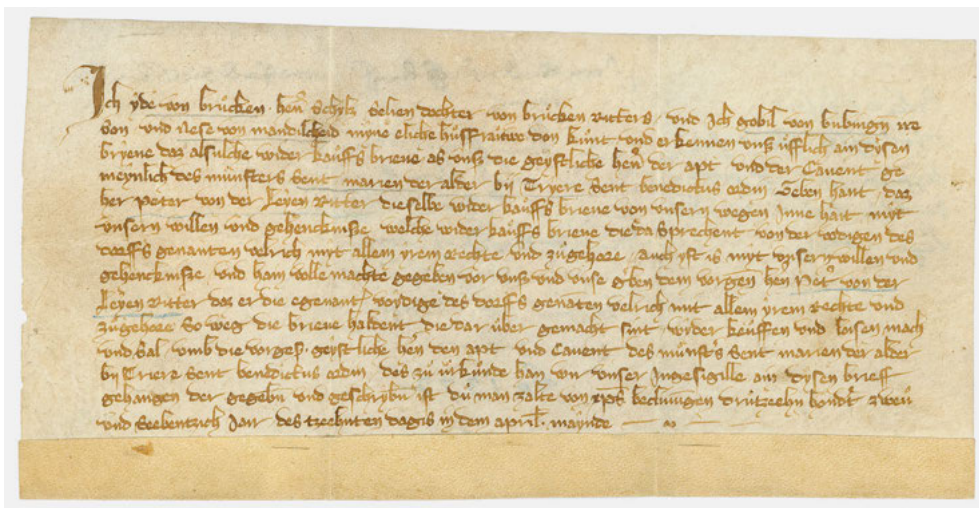 Ich yde von brucken hern Schylz Selien dochter von brucken ritters und Ich gobil von bubingn ire
Son und Nese von mandilcheid myne eliche huffrauwe don kunt und erkennen uns ufflich ain dysen
brieve daz alsulche wider kauffs brieve as uns die geystliche hern der apt und der Cavent ge
meynlich des munsters Sent marien der alder bij Tryere Sent benedictus ordin geben hant daz
her peter von der Leyen Ritter dieselbe wider kauffs brieve von unsern wegen Inne hait myt
unsern willen und gehencknisse welche wider kauffs brieve die da sprechent von der vodigen des
dorffs genanten velrich myt allem yrem rechte und zugehore auch yst is myt unsern willen und
gehencknisse und han volle machte gegeben vor uns und unse erben dem vorgen hern Peter von der
Leyen Ritter daz er die egenant vordige des dorffs genaten velrich mit allem yrem rechte und
zugehore So weg die brieve haldent die dar uber gemacht sint wyder keuffen und loisen mach
und sal umb die vorges geystliche hern den apt und Cavent des munsters Sent marien der alder
bij Triere Sent benedictus ordin des zu urkunde han wir unser Ingesigille ain dysen brieff
gehangen der gegebn und geschrybn ist du man zalte von xps drutzeehn hondert zweu
und Seebentzich Jair des tzeehnten dagis in dem april maynde